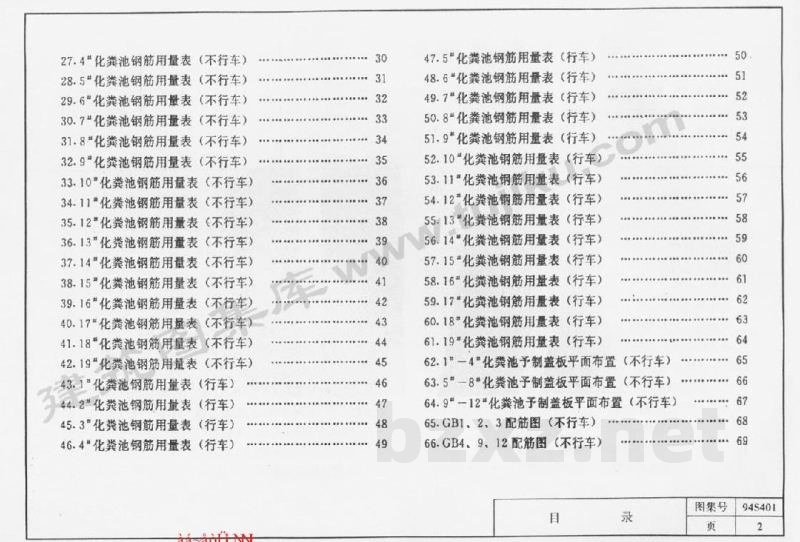 27.4#化粪池钢筋用量表（不行车） 30
28.5#化粪池钢筋用量表（不行车） 31
29.6#化粪池钢筋用量表（不行车） 32
30.7#化粪池钢筋用量表（不行车） 33
31.8#化粪池钢筋用量表（不行车） 34
32.9#化粪池钢筋用量表（不行车） 35
33.10#化粪池钢筋用量表（不行车） 36
34.11#化粪池钢筋用量表（不行车） 37
35.12#化粪池钢筋用量表（不行车） 38
36.13#化粪池钢筋用量表（不行车） 39
37.14#化粪池钢筋用量表（不行车） 40
38.15#化粪池钢筋用量表（不行车） 41
39.16#化粪池钢筋用量表（不行车） 42
40.17#化粪池钢筋用量表（不行车） 43
41.18#化粪池钢筋用量表（不行车） 44
42.19#化粪池钢筋用量表（不行车） 45
43.1#化粪池钢筋用量表（行车） 46
44.2#化粪池钢筋用量表（行车） 47
45.3#化粪池钢筋用量表（行车） 48
46.4#化粪池钢筋用量表（行车） 49
47.5#化粪池钢筋用量表（行车） 50
48.6#化粪池钢筋用量表（行车） 51
49.7#化粪池钢筋用量表（行车） 52
50.8#化粪池钢筋用量表（行车） 53
51.9#化粪池钢筋用量表（行车） 54
52.10#化粪池钢筋用量表（行车） 55
53.11#化粪池钢筋用量表（行车） 56
54.12#化粪池钢筋用量表（行车） 57
55.13#化粪池钢筋用量表（行车） 58
56.14#化粪池钢筋用量表（行车） 59
57.15#化粪池钢筋用量表（行车） 60
58.16#化粪池钢筋用量表（行车） 61
59.17#化粪池钢筋用量表（行车） 62
60.18#化粪池钢筋用量表（行车） 63
61.19#化粪池钢筋用量表（行车） 64
62.1#－4#化粪池予制盖板平面布置（不行车） 65
63.5#－8#化粪池予制盖板平面布置（不行车） 66
64.9#－12#化粪池予制盖板平面布置（不行车） 67
65.GB1、2、3配筋图（不行车） 68
66.GB4、9、12配筋图（不行车） 69
目 录
图集号 94S401
页 2
建筑图集库 www.tujiku.com
bzxz.net